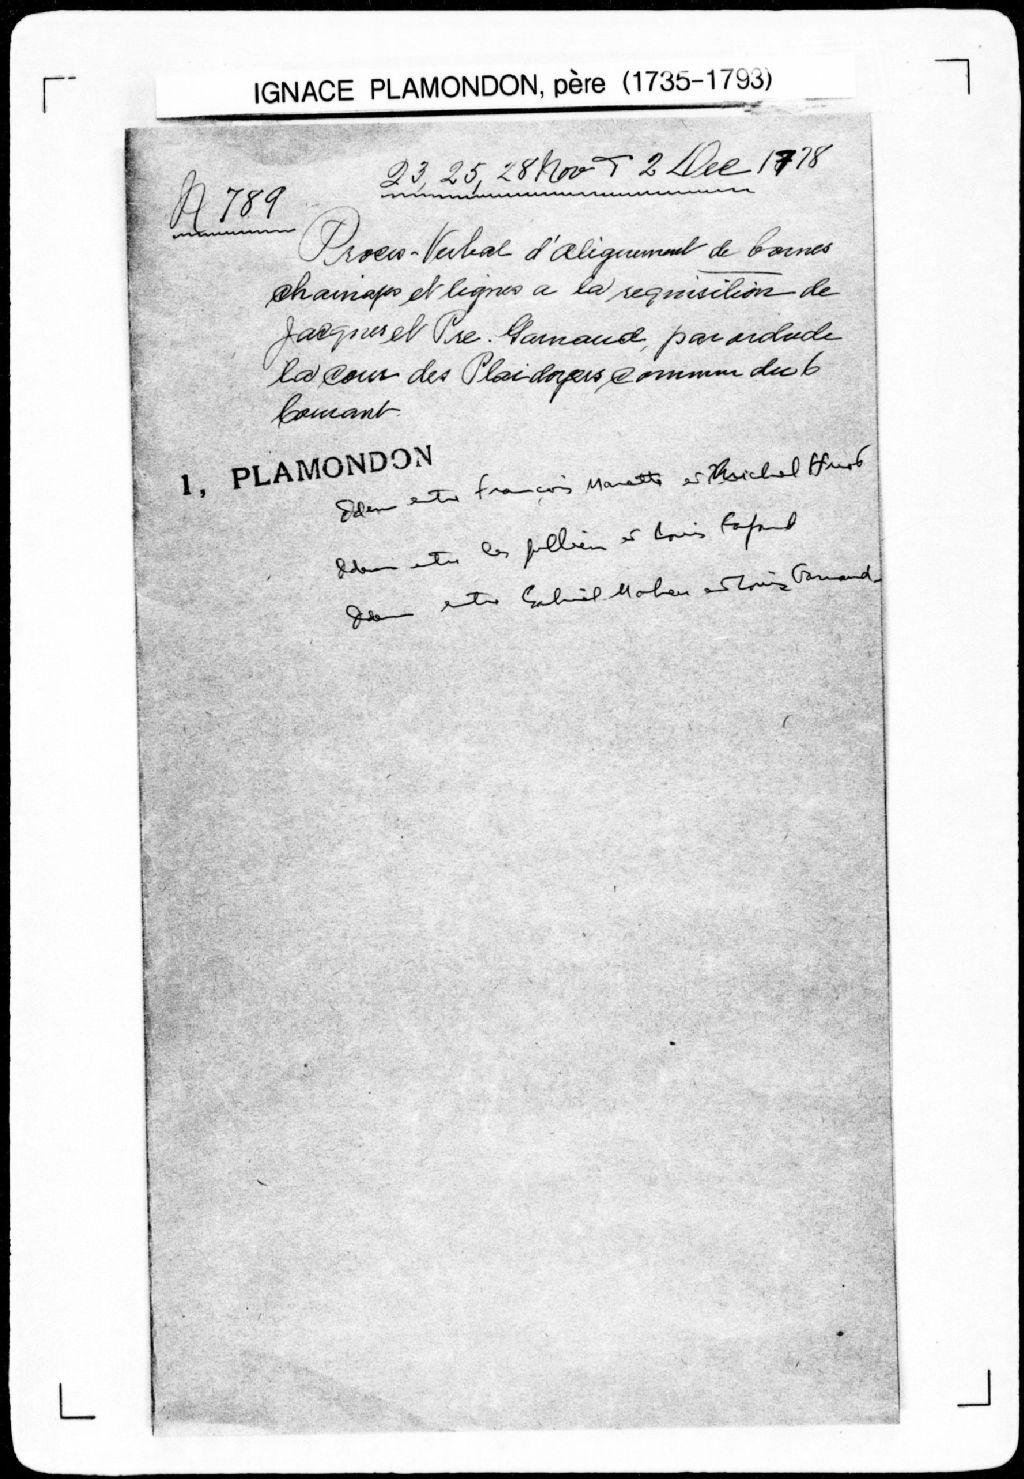 IGNACE PLAMONDON, père (1735-1793)
23, 25, 28 Nov & 2 Dec 1778
N 789
Proces-Verbal d'alignement de bornes
chainages et lignes a la requisition de
Jacques et Pre. Garnaud, par ordre de
la Cour des Plaidoyers, commun du 6
Courant.
1, PLAMONDON
Idem entre François Marette et Michel Huot
Idem entre les Jullien et Louis
Idem entre Gabriel Maheu et Louis Garnaud